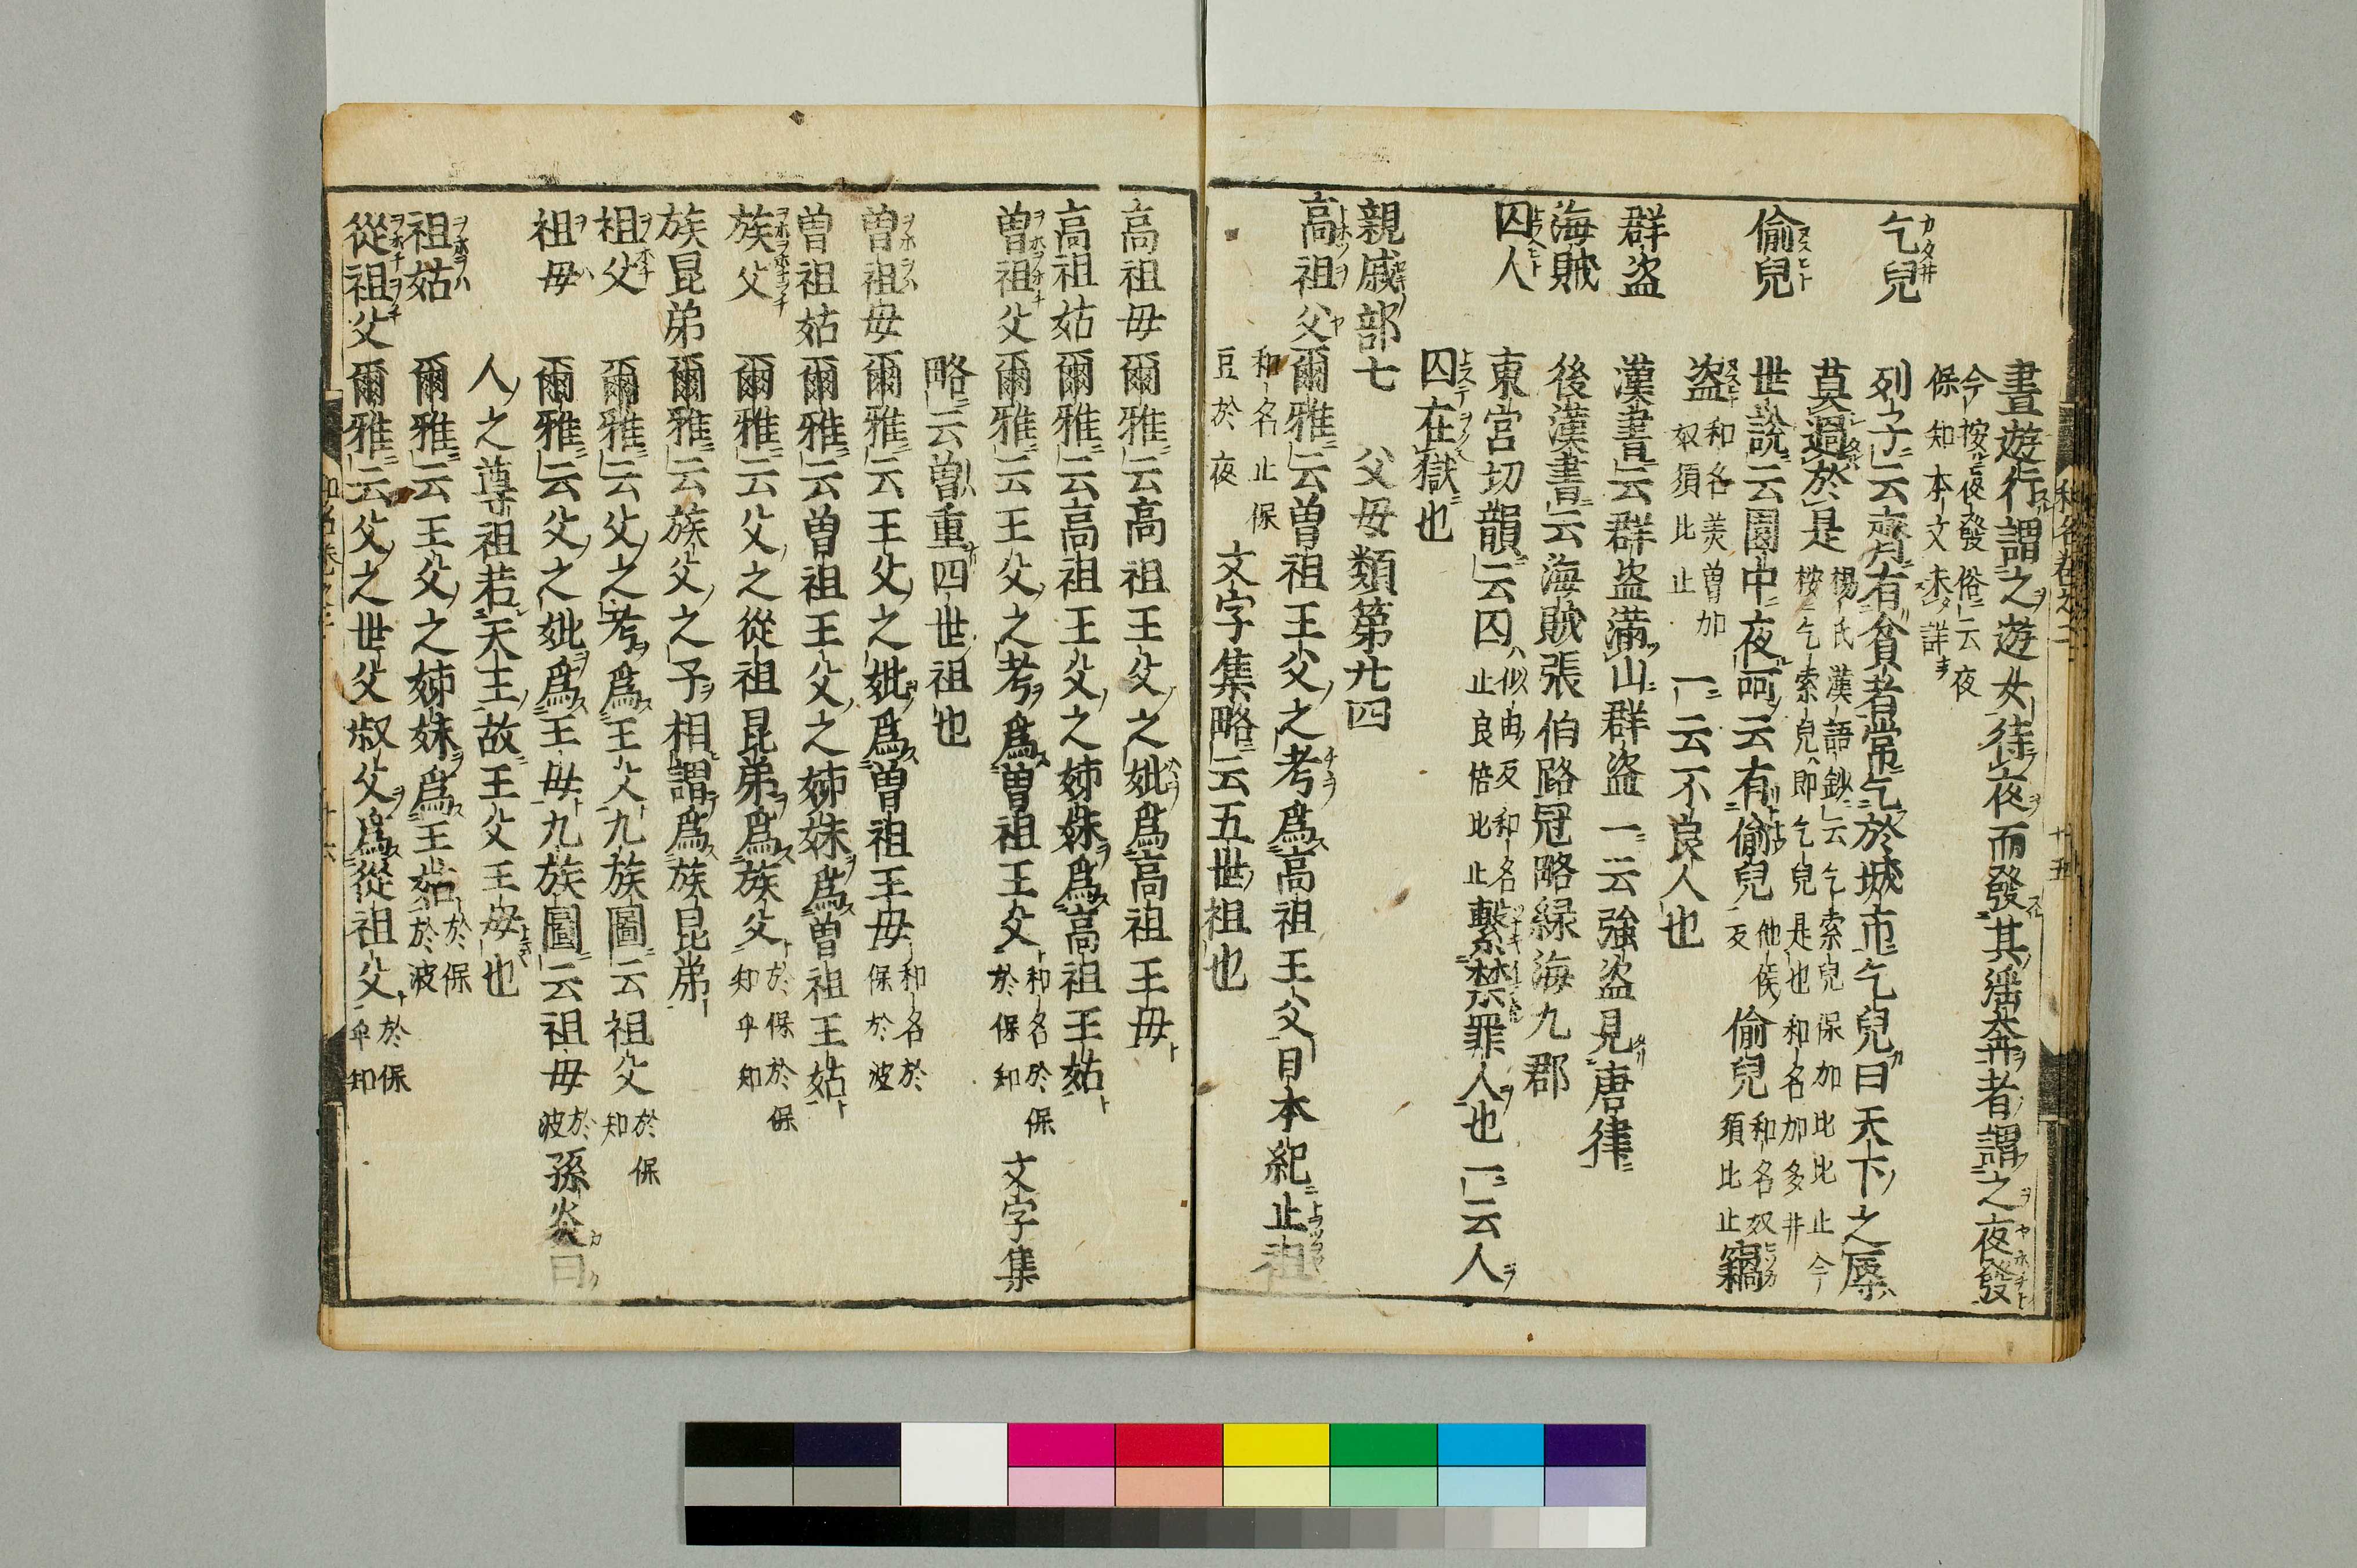 晝遊行謂之遊女待夜而發其淫奔者謂之夜發
今按夜發俗云夜
保知本文未詳
乞兒 列子云齊有貧者常乞於城市乞兒曰天下之辱
莫過於是 楊氏漢語鈔云乞索兒保加比比止今
按乞索兒即乞兒是也和名加多井
偷兒 世說云園中夜呵云有偷兒 他侯反 偷兒 和名奴須比止 竊
盜 和名美曽加奴須比止 一云不良人也
群盜 漢書云群盜滿山群盜一云強盜見唐律
海賊 後漢書云海賊張伯路冠略緑海九郡
囚人 東宮切韻云囚 似由反和名止良倍比止 繫禁罪人也一云人
囚在獄也
親戚部七 父母類第廿四
高祖父 爾雅云曽祖王父之考爲高祖王父日本紀止祖
和名止保豆於夜 文字集略云五世祖也
高祖母 爾雅云高祖王父之妣爲高祖王母
高祖姑 爾雅云高祖王父之姊妹爲高祖王姑
曽祖父 爾雅云王父之考爲曽祖王父 和名於保於保知 文字集
略云曽重四世祖也
曽祖母 爾雅云王父之妣爲曽祖王母 和名於保於波
曽祖姑 爾雅云曽祖王父之姊妹爲曽祖王姑
族父 爾雅云父之從祖昆弟爲族父 於保於保知乎知
族昆弟 爾雅云族父之子相謂爲族昆弟
祖父 爾雅云父之考爲王父九族圖云祖父 於保知
祖母 爾雅云父之妣爲王母九族圖云祖母 於波 孫炎曰
人之尊祖若天王故王父王母也
祖姑 爾雅云王父之姊妹爲王姑 於保於波
從祖父 爾雅云父之世父叔父爲從祖父 於保知乎知